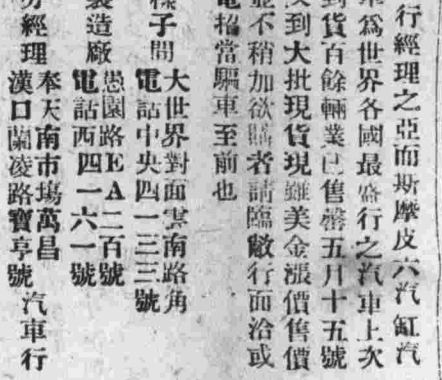 行經理之亞而斯摩皮六汽缸汽
車爲世界各國最盛行之汽車上次
到貨百餘輛業已售罄五月十五號
又到大批現貨現雖美金漲價售價
並不稍加欲購者請臨敝行面洽或
電招當驅車至前也
樣子間
大世界對面雲南路角
電話中央四一三三號
製造廠
愚園路EA二百號
電話西四一六一號
分經理
奉天南市場萬昌
漢口蘭凌路寶亨號
汽車行